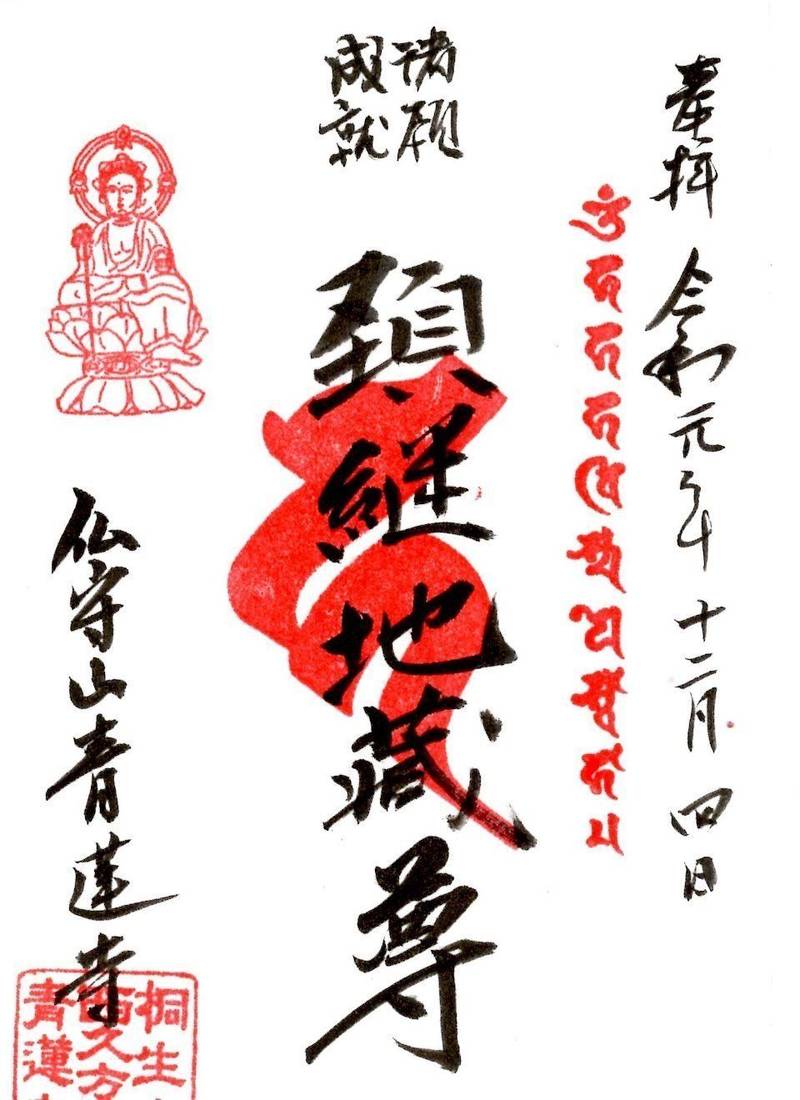 奉拝 令和元年十二月四日
諸願
成就
頚継地蔵尊
仏守山青蓮寺
桐生
西久方
青蓮